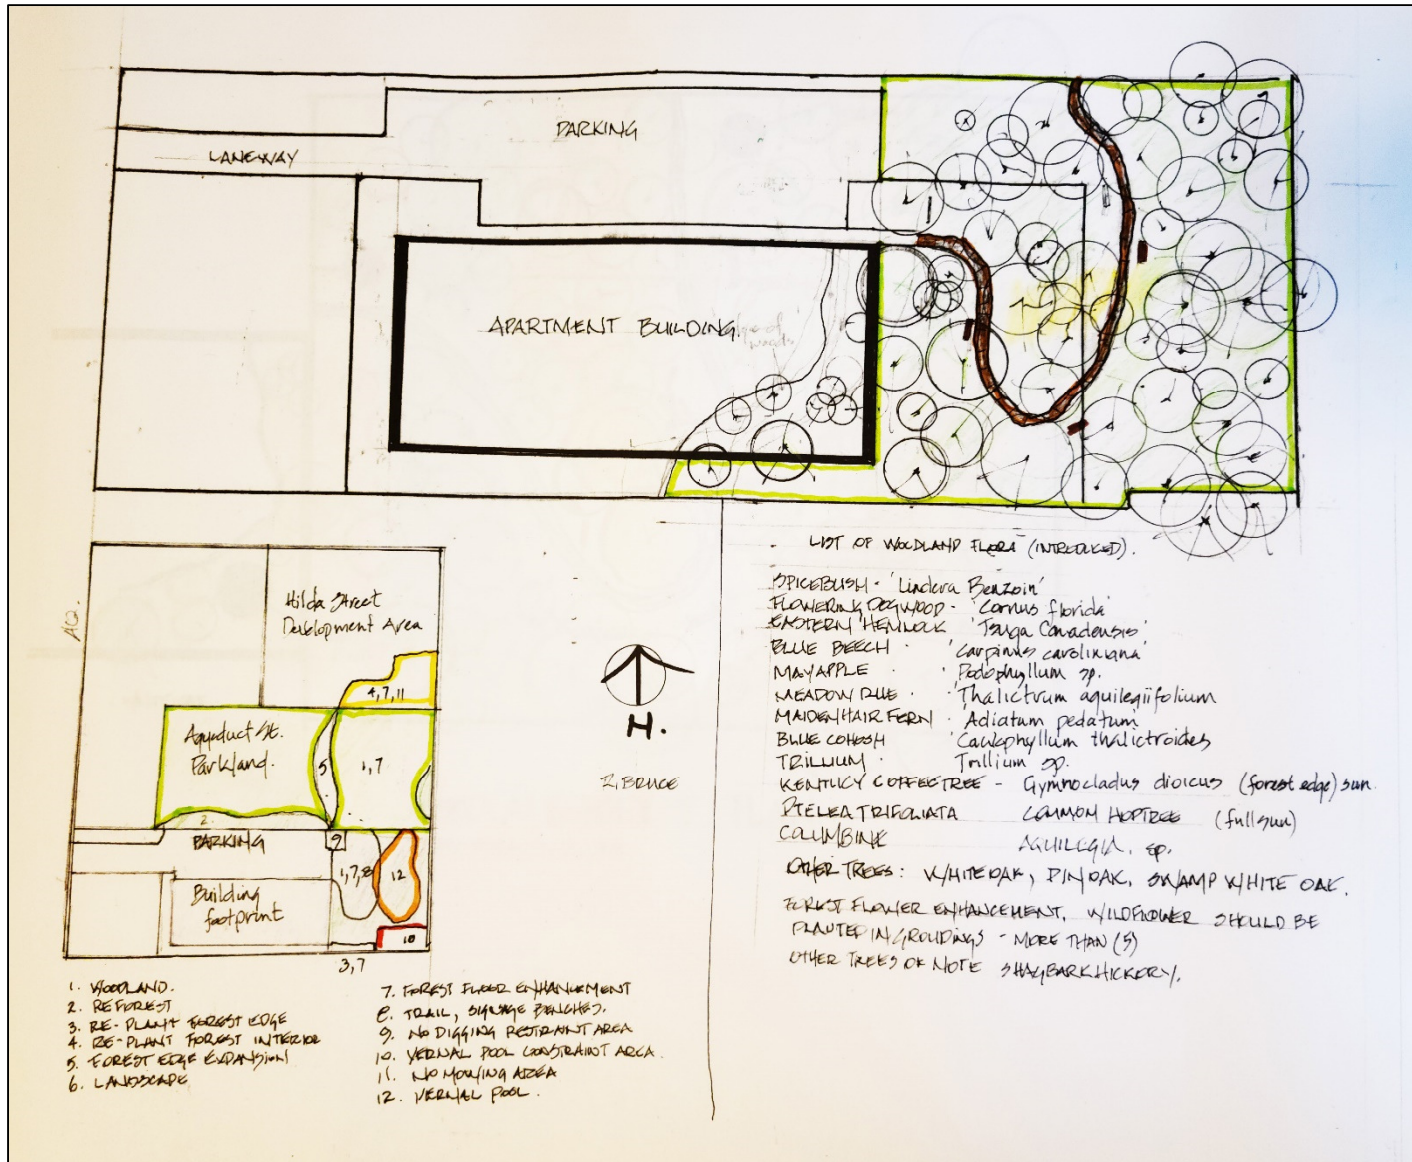 PARKING
LANEWAY
APARTMENT BUILDING.
woods
AQ.
Hilda Street
Development Area
4,7,11
Aquaduct St.
Parkland.
5
1,7
2.
PARKING
9
1,7,8
12
Building
footprint
10
3,7
N.
R, BRUCE
1. WOODLAND.
2. REFOREST
3. RE-PLANT FOREST EDGE
4. RE-PLANT FOREST INTERIOR
5. FOREST EDGE EXPANSION
6. LANDSCAPE
7. FOREST FLOOR ENHANCEMENT
8. TRAIL, SIGNAGE BENCHES.
9. NO DIGGING RESTRAINT AREA
10. VERNAL POOL CONSTRAINT AREA.
11. NO MOWING AREA
12. VERNAL POOL.
LIST OF WOODLAND FLORA (INTRODUCED).
SPICEBUSH - 'Lindera Benzoin'
FLOWERING DOGWOOD - 'Cornus florida'
EASTERN HEMLOCK 'Tsuga Canadensis'
BLUE BEECH - 'Carpinus caroliniana'
MAYAPPLE - Podophyllum sp.
MEADOW RUE - 'Thalictrum aquilegiifolium
MAIDENHAIR FERN - 'Adiatum pedatum
BLUE COHOSH 'Caulophyllum thalictroides
TRILLIUM - Trillium sp.
KENTUCY COFFEETREE - Gymnocladus dioicus (forest edge) sun.
PTELEA TRIFOLIATA COMMON HOPTREE (full sun)
COLUMBINE AQUILEGIA. sp.
OTHER TREES: WHITE OAK, PIN OAK, SWAMP WHITE OAK.
FOREST FLOWER ENHANCEMENT, WILDFLOWER SHOULD BE
PLANTED IN GROUPINGS - MORE THAN (5)
OTHER TREES OF NOTE SHAGBARK HICKORY.